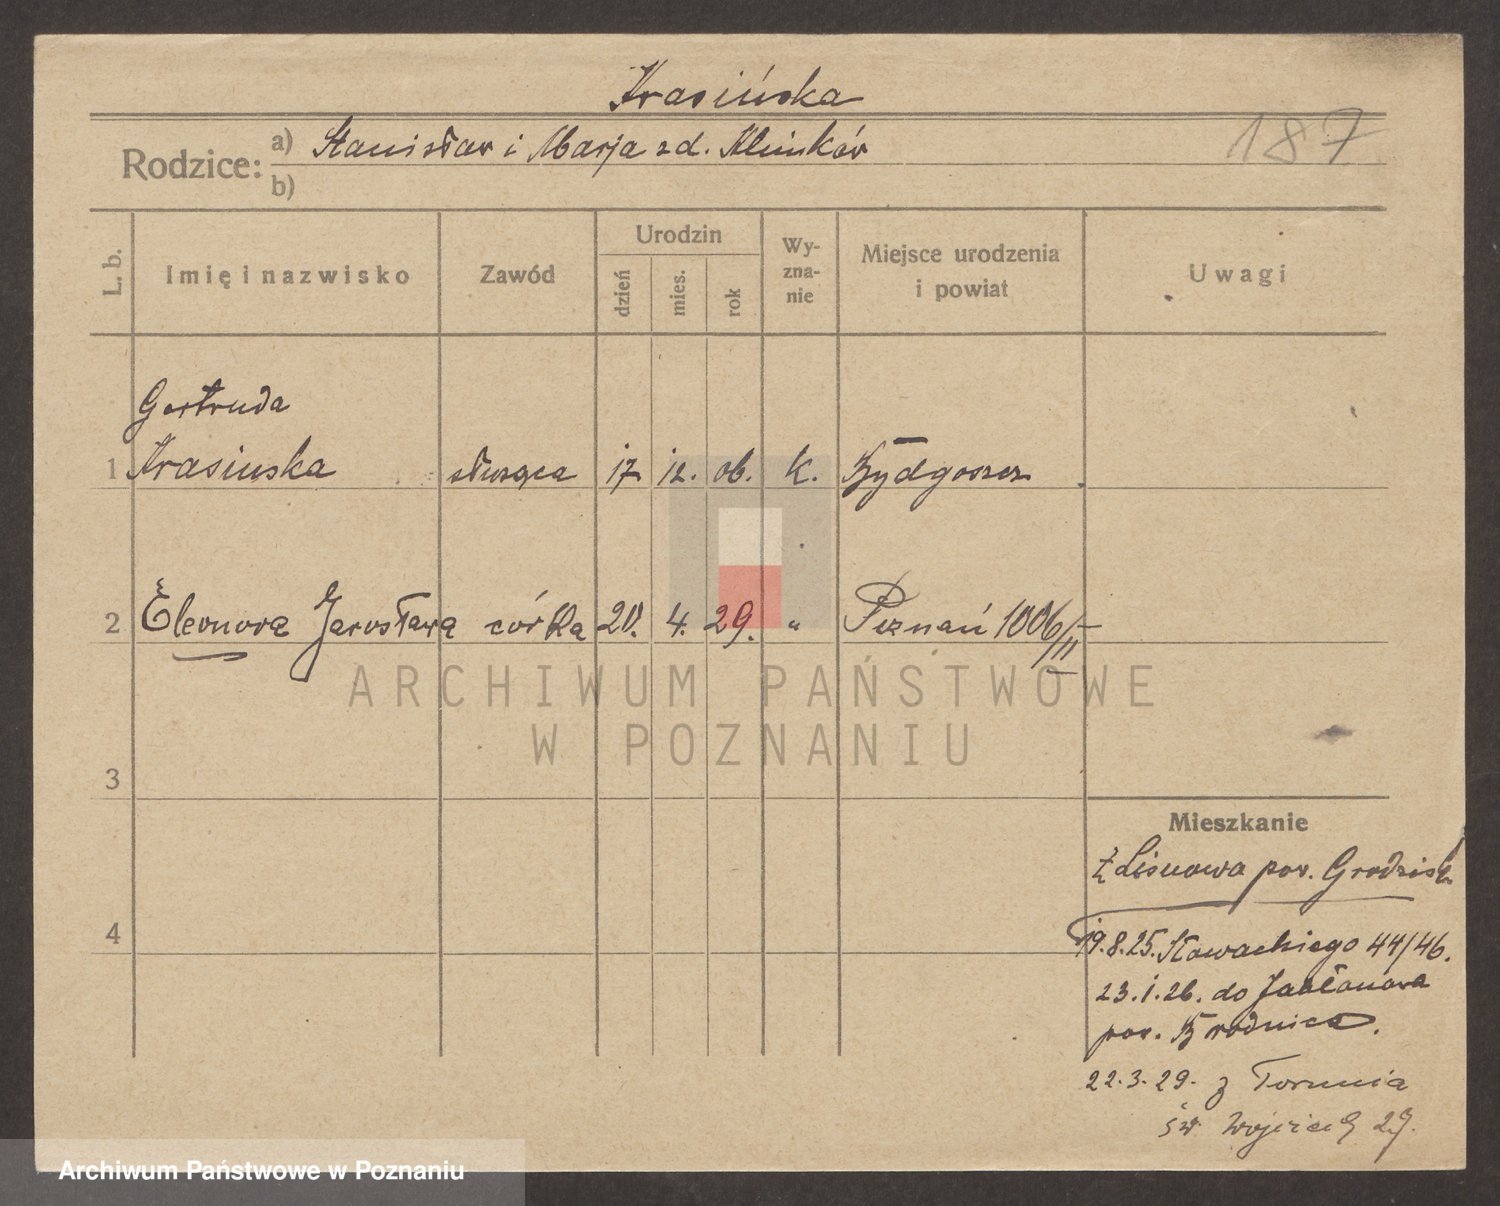 Krasińska
187
Rodzice: a) Stanisław i Marja z d. Klimków
b)
L. b. Imię i nazwisko Zawód Urodzin dzień mies. rok Wy-zna-nie Miejsce urodzenia i powiat Uwagi
Gertruda
1 Krasinska służąca 17 12. 06. K. Bydgoszcz
2 Eleonora Jarosława córka 20. 4. 29. " Poznań 1006/II
ARCHIWUM PAŃSTWOWE
W POZNANIU
3
Mieszkanie
Z Lisnowa pow. Grodzisk
4
19.8.25. Słowackiego 44/46.
23.1.26. do Jabłonowa
pow. Brodnica.
22.3.29. z Torunia
św Wojciech 29.
Archiwum Państwowe w Poznaniu